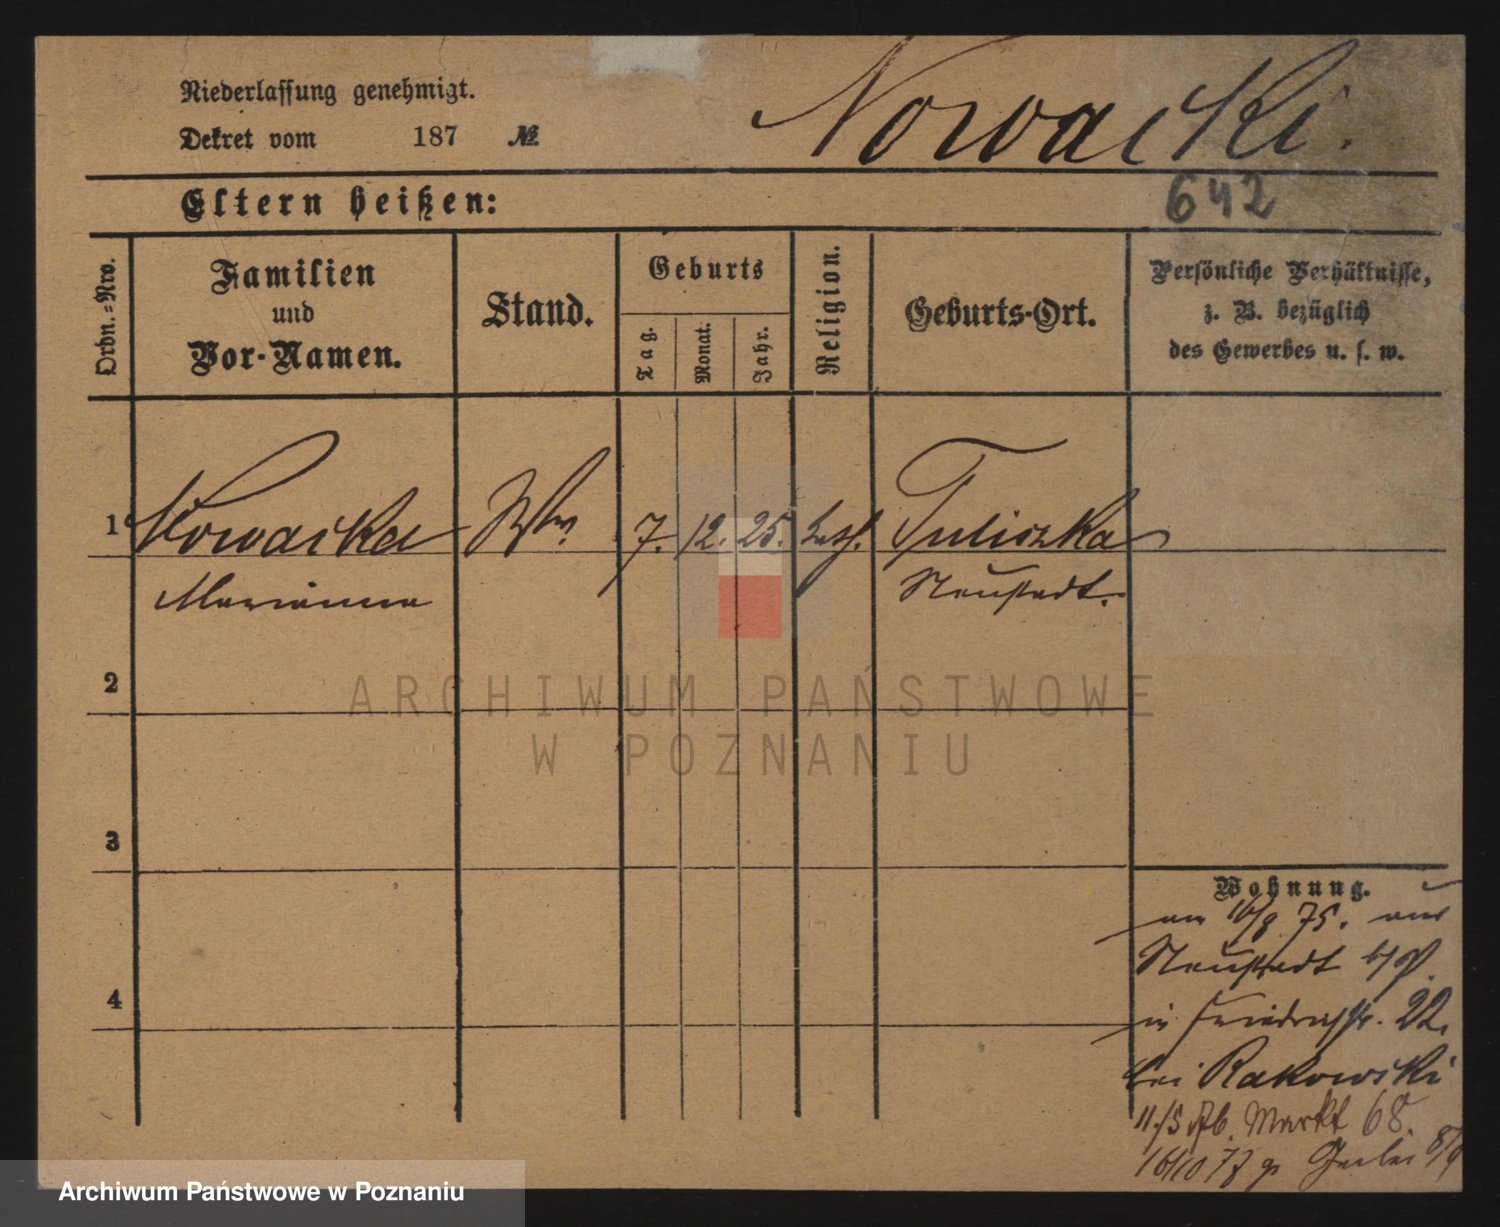 Niederlassung genehmigt.
Dekret vom 187 №
Nowacki.
642
Eltern heißen:
Ordn.=Nro.
Familien
und
Vor-Namen.
Stand.
Geburts
Tag.
Monat.
Jahr.
Religion.
Geburts-Ort.
Persönliche Verhältnisse,
z. B. bezüglich
des Gewerbes u. s. w.
1 Nowacka Ww. 7. 12. 25. kath. Tuliszka
Marianna Neustadt.
2
3
4
Wohnung.
am 16/9 75. aus
Neustadt b/P.
in Friedrichstr. 22.
bei Rakowski
11./5 76. Markt 68.
16/10 77 gr.
ARCHIWUM PAŃSTWOWE
W POZNANIU
Archiwum Państwowe w Poznaniu